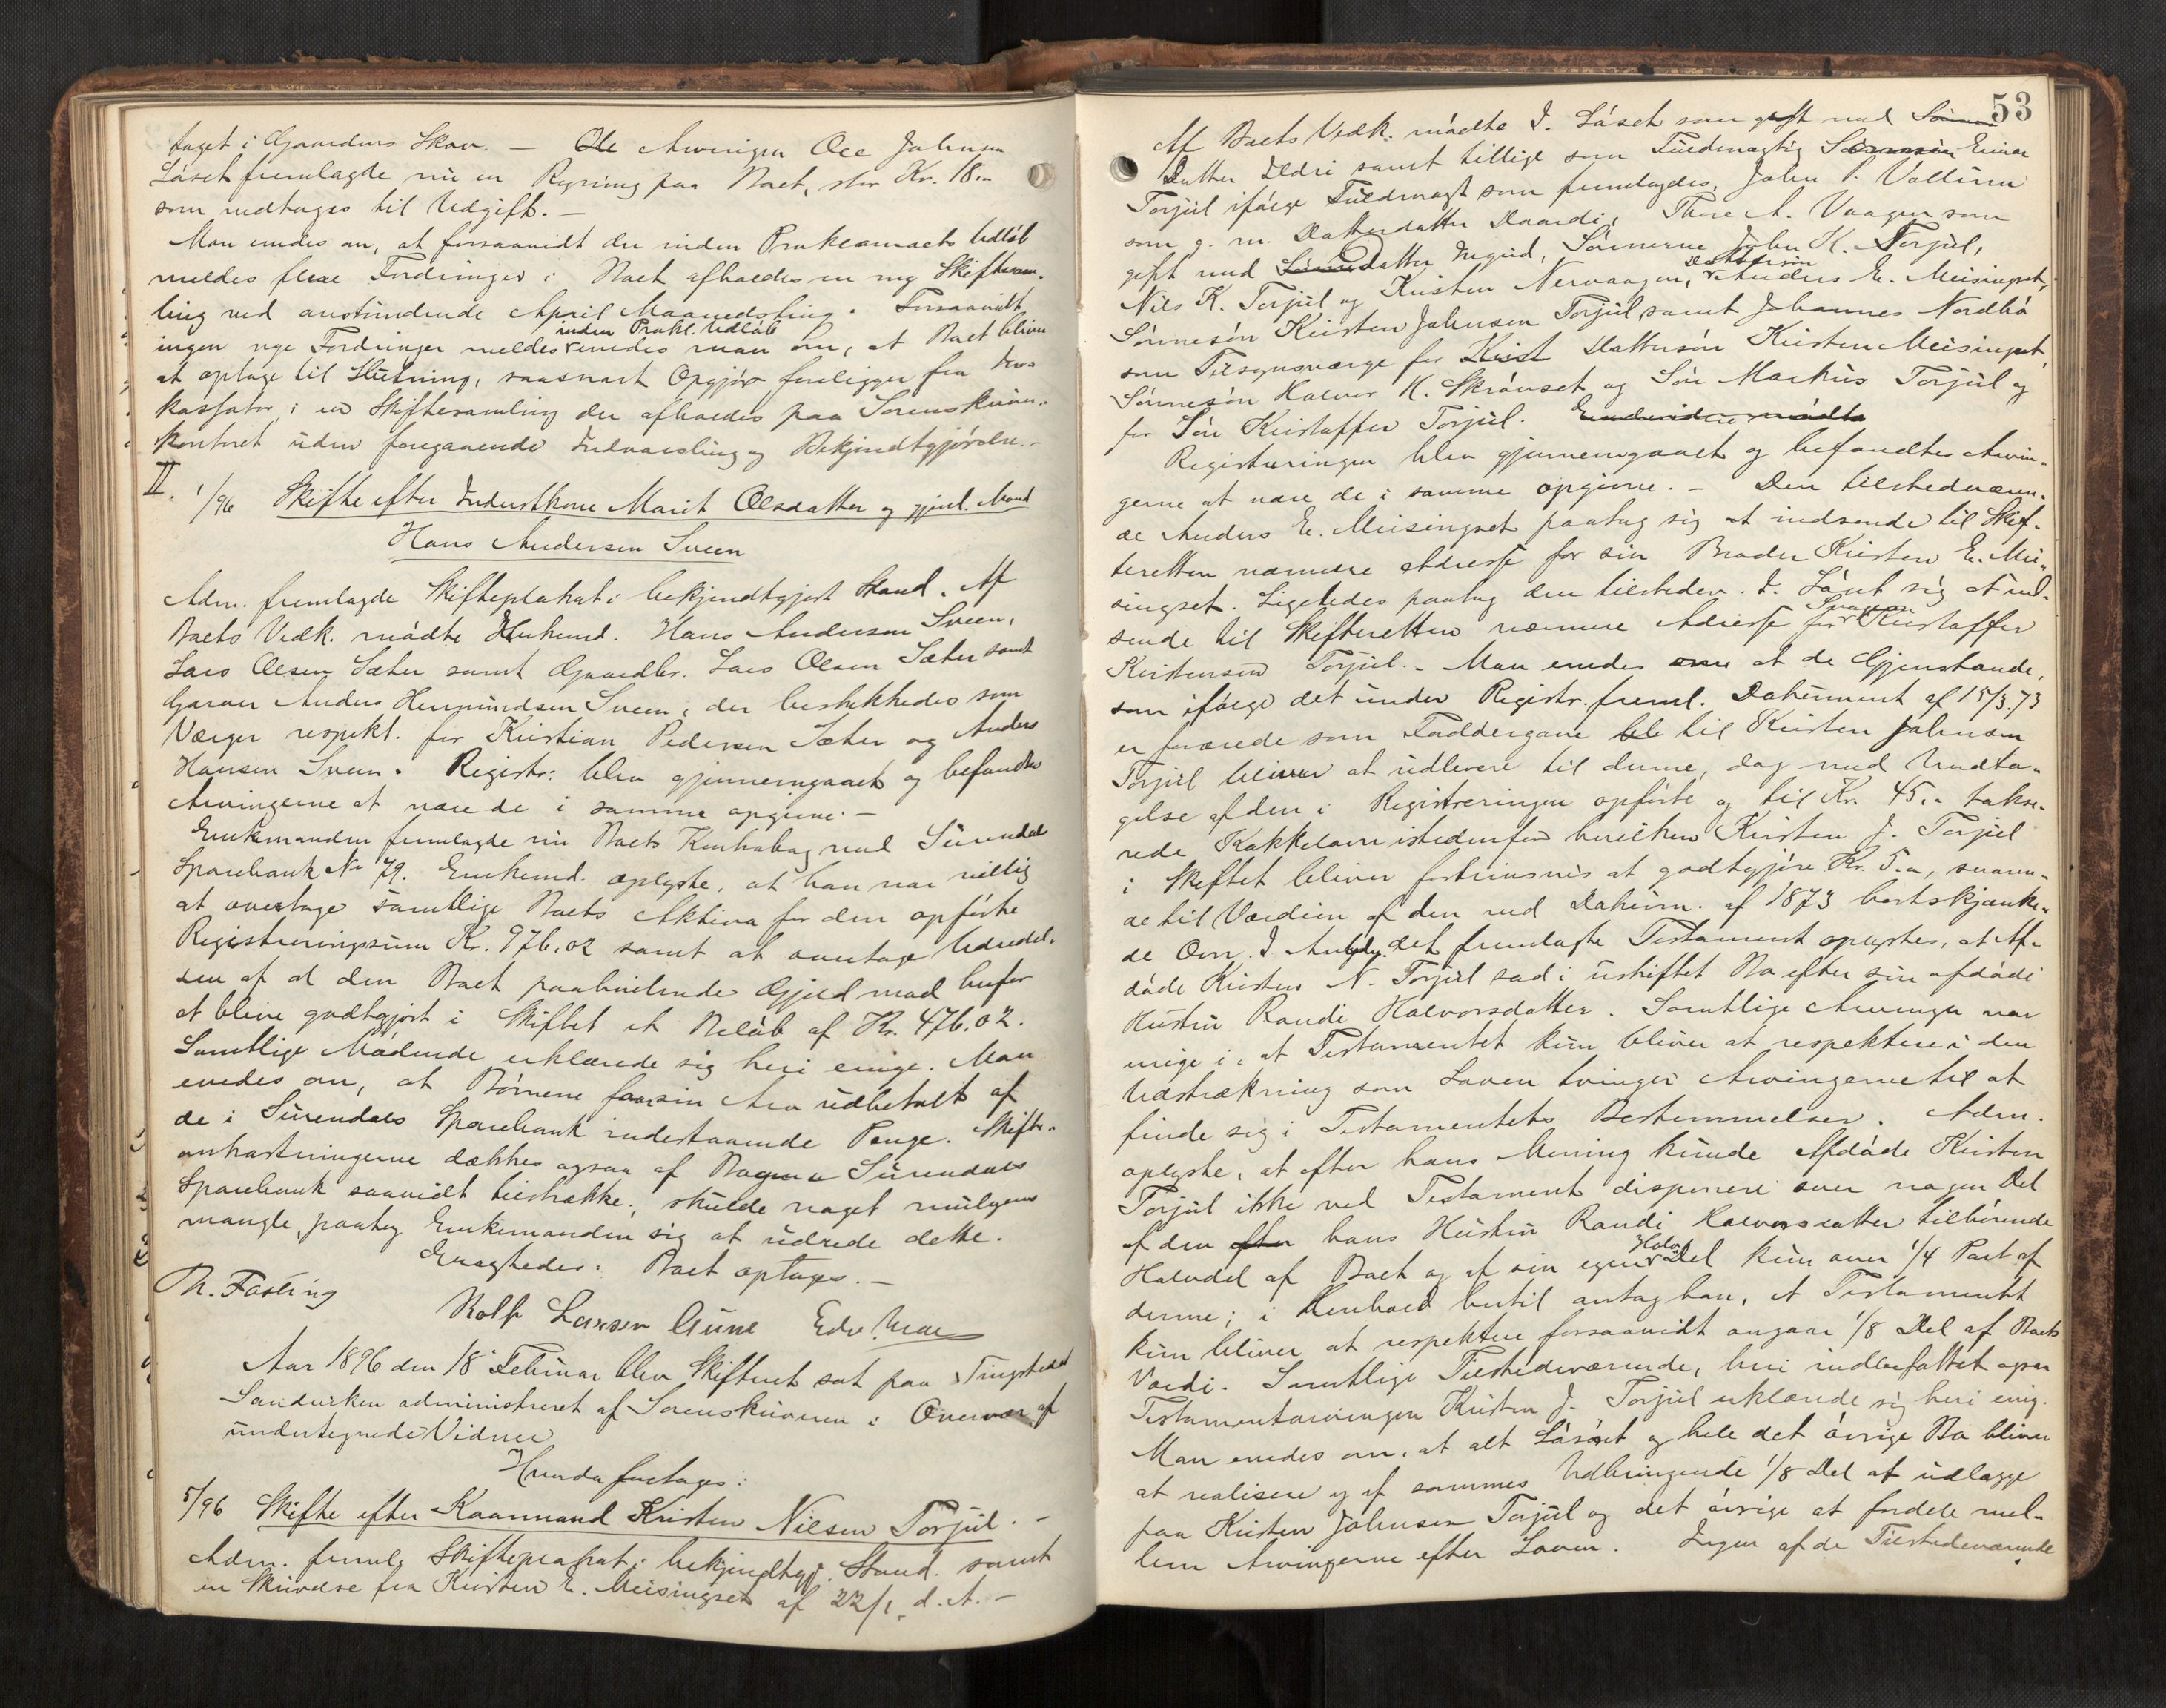 taget i Gaardens Skov. — Ole Arvingen Ole Johnsen
Løset fremlagde nu en Regning paa Boet, stor Kr. 18..
som medtages til Udgift. —
Man enedes om, at forsaavidt der inden Proklamaets Udløb
meldes flere Fordringer i Boet afholdes en ny Skiftesam-
ling ved anstundende April Maanedsting. Forsaavidt
inden Prokl. Udløb
ingen nye Fordringer meldes enedes man om, at Boet bliver
at optage til Slutning, saasnart Opgjør foreligger fra In-
kassator, i en Skiftesamling der afholdes paa Sorenskriver-
kontoret uden foregaaende Indvarsling og Bekjendtgjørelse. -
II. 1/96 Skifte efter Inderstkone Marit Olsdatter og gjenl. Mand
Hans Andersen Sveen
Adm. fremlagde Skifteplakat i bekjendtgjort Stand. Af
Boets Vedk. mødte Enkemd. Hans Andersen Sveen,
Lars Olsen Sæter samt Gaardbr. Lars Olsen Sæter samt
Garver Anders Hermundsen Sveen, der beskikkedes som
Værger respekt. for Kristian Pedersen Sæter og Anders
Hansen Sveen. Registr: blev gjennemgaaet og befandtes
Arvingerne at være de i samme opgivne. —
Enkemanden fremlagde nu Boets Kontrabog med Surendals
Sparebank No 79. Enkemd. oplyste, at han var villig
at overtage samtlige Boets Aktiva for den opførte
Registreringssum Kr. 976.02 samt at overtage Udredel-
sen af al den Boet paahvilende Gjæld mod herfor
at blive godtgjort i Skiftet et Beløb af Kr. 476.02.
Samtlige Mødende erklærede sig heri enige. Man
enedes om, at Børnene faar sin Arv udbetalt af
de i Surendals Sparebank indestaaende Penge. Skifte-
omkostningerne dækkes ogsaa af Pengene Surendals
Sparebank saavidt tilstrække; skulde noget muligens
mangle, paatog Enkemanden sig at udrede dette.
Enstegheder. Boet optages. —
Th. Fasting
Rolf Larsen Gune Edv. Moe
Aar 1896 den 18 Februar blev Skifteret sat paa Tingstedet
Sandviken administreret af Sorenskriveren i Overvær af
undertegnede Vidner
Hvorda foretages:
5/96 Skifte efter Kaarmand Kristen Nilsen Torjul. -
Adm. freml. Skifteplakat i bekjendtgj. Stand. samt
en Skrivelse fra Kristen E. Meisingset af 22/1. d. A. -
53
Af Boets Vedk. mødte I. Løset som gift med Sønne
Datter Ildri samt tillige som Fuldmægtig Sønnesøn Einar
Torjul ifølge Fuldmagt som fremlagdes, John P. Vollum
som g. m. Datterdatter Daardi, Thore A. Vaagen som
gift med Sønnedatter Ingrid, Sønnerne John K. Torjul,
Dattersøn
Nils K. Torjul og Kristen Nervaagen, Anders E. Meisingset,
Sønnesøn Kristen Johnsen Torjul samt Johannes Nordbø
som Tilsynsværge for Krist Dattersøn Kristen Meisingset,
Sønnesøn Halvor K. Skrøvset og Søn Markus Torjul og
for Søn Kristoffer Torjul. Endvidere mødte
Registreringen blev gjennemgaaet og befandtes Arvin-
gerne at være de i samme opgivne. - Den tilstedeværen-
de Anders E. Meisingset paatog sig at indsende til Skif-
teretten nærmere Adresse for sin Broder Kristen E. Mei-
singset. Ligeledes paatog den tilstedev. I. Løset sig at ind-
Svoger
sende til Skifteretten nærmere Adresse for Kristoffer
Kristensen Torjul. - Man enedes om at de Gjenstande,
som ifølge det under Registr. freml. Dokument af 15/3.73
er forærede som Faddergave til Kristen Johnsen
Torjul bliver at udlevere til denne, dog med Undta-
gelse af den i Registreringen opførte og til Kr. 45.- takse-
rede Kakkelovn istedenfor hvilken Kristen J. Torjul
i Skiftet bliver fortrinsvis at godtgjøre Kr. 5.-, svaren-
de til Værdien af den ved Dokum. af 1873 bortskjænke-
de Ovn. I Anledn. det fremlagte Testament oplystes, at Af-
døde Kristen N. Torjul sad i uskiftet Bo efter sin afdøde
Hustru Randi Halvorsdatter. Samtlige Arvinger var
enige i, at Testamentet kun bliver at respektere i den
Udstrækning som Loven tvinger Arvingerne til at
finde sig i Testamentets Bestemmelser. Adm.
oplyste, at efter hans Mening kunde Afdøde Kristen
Torjul ikke ved Testament disponere over nogen Del
af den efter hans Hustru Randi Halvorsdatter tilhørende
Halv
Halvdel af Boet og af sin egen Del kun over 1/4 Part af
denne; i Henhold hertil antog han, at Testamentet
kun bliver at respektere forsaavidt angaar 1/8 Del af Boets
Værdi. Samtlige Tilstedeværende, heri indbefattet ogsaa
Testamentarvingen Kristen J. Torjul erklærede sig heri enig.
Man enedes om, at alt Løsøret og hele det øvrige Bo bliver
at realisere og af sammes Udbringende 1/8 Del at udlægge
paa Kristen Johnsen Torjul og det øvrige at fordele mel-
lem Arvingerne efter Loven. Ingen af de Tilstedeværende